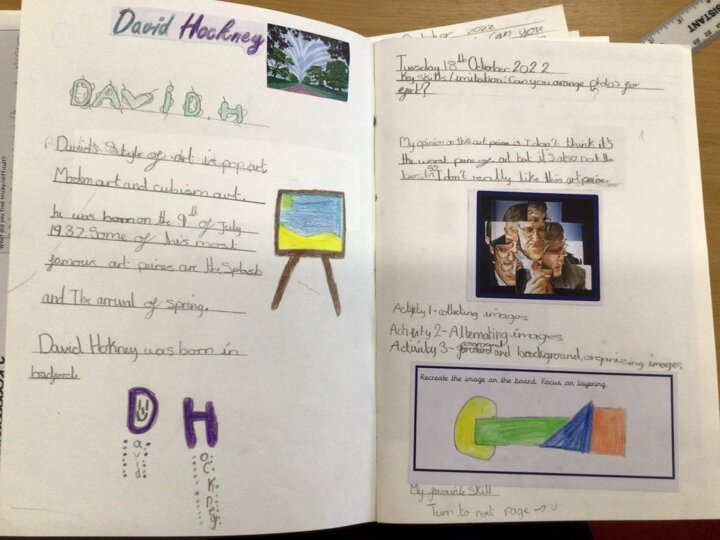 David Hockney
DAVID.H
David's Style of art is pop art
Modern art and cubism art.
he was born on the 9th of July
1937. Some of his most
famous art pieces are the Splash
and The arrival of spring.
David Hokney was born in
bradford.
D H
avid
ockney
October 2022
can you
Tuesday 18th October 2022
Key skills/imitation: Can you arrange photos for
effect?
My opinion on this art peice is I don't think it's
the worst peice of art but it's also not the
best I don't really like this art peice.
Activity 1 - collecting images
Activity 2 - Alternating images
Activity 3 - and background, organizing images
Recreate the image on the board. Focus on layering.
My favourite skill
Turn to next page →
What did you find tricky/difficult?